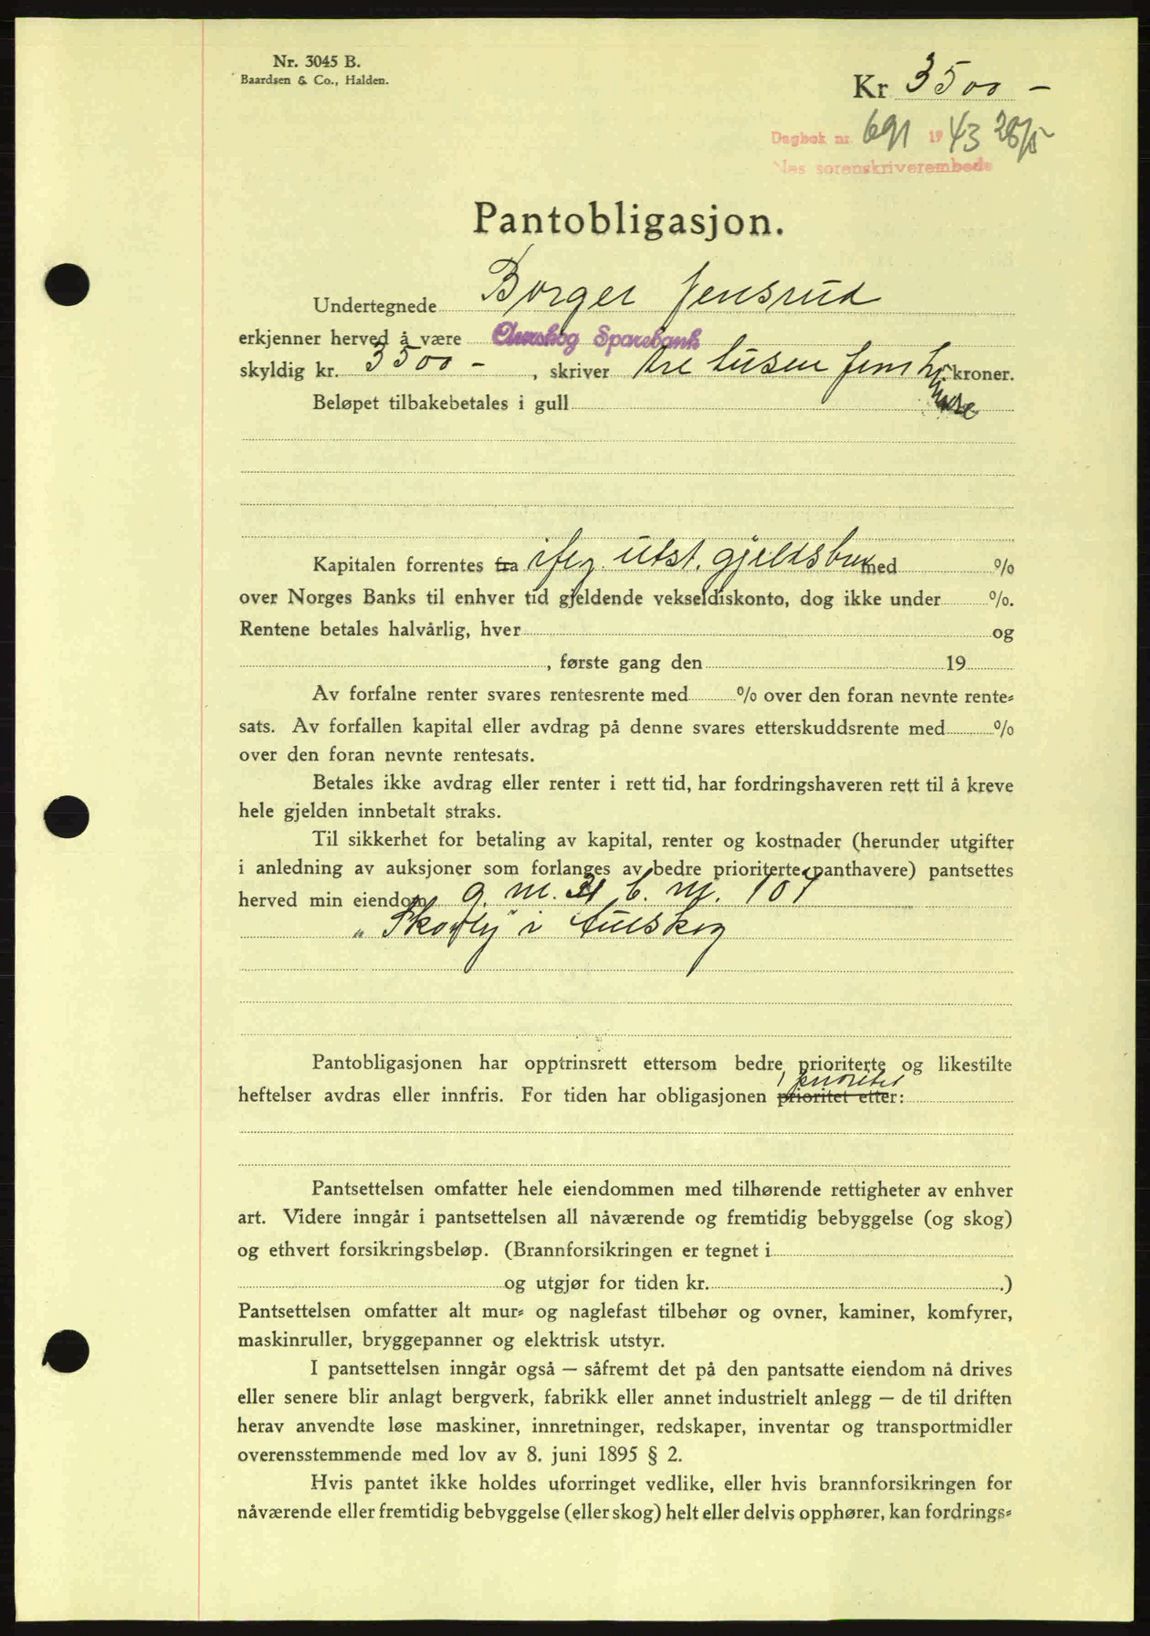 Nr. 3045 B.
Baardsen & Co., Halden.
Kr. 3500 -
Dagbok nr. 691 1943 28/5
Nes sorenskriverembede
Pantobligasjon.
Undertegnede Borger Jensrud
erkjenner herved å være Aurskog Sparebank
skyldig kr. 3500 - , skriver tre tusen fem hundre kroner.
Beløpet tilbakebetales i gull
Kapitalen forrentes fra iflg. utst. gjeldsbrev med %
over Norges Banks til enhver tid gjeldende vekseldiskonto, dog ikke under %.
Rentene betales halvårlig, hver og
, første gang den 19
Av forfalne renter svares rentesrente med % over den foran nevnte rente-
sats. Av forfallen kapital eller avdrag på denne svares etterskuddsrente med %
over den foran nevnte rentesats.
Betales ikke avdrag eller renter i rett tid, har fordringshaveren rett til å kreve
hele gjelden innbetalt straks.
Til sikkerhet for betaling av kapital, renter og kostnader (herunder utgifter
i anledning av auksjoner som forlanges av bedre prioriterte panthavere) pantsettes
herved min eiendom g. nr. 31 b. nr. 107
"Skogly" i Aurskog
Pantobligasjonen har opptrinsrett ettersom bedre prioriterte og likestilte
1 prioritet
heftelser avdras eller innfris. For tiden har obligasjonen prioritet etter:
Pantsettelsen omfatter hele eiendommen med tilhørende rettigheter av enhver
art. Videre inngår i pantsettelsen all nåværende og fremtidig bebyggelse (og skog)
og ethvert forsikringsbeløp. (Brannforsikringen er tegnet i
og utgjør for tiden kr. .)
Pantsettelsen omfatter alt mur- og naglefast tilbehør og ovner, kaminer, komfyrer,
maskinruller, bryggepanner og elektrisk utstyr.
I pantsettelsen inngår også — såfremt det på den pantsatte eiendom nå drives
eller senere blir anlagt bergverk, fabrikk eller annet industrielt anlegg — de til driften
herav anvendte løse maskiner, innretninger, redskaper, inventar og transportmidler
overensstemmende med lov av 8. juni 1895 § 2.
Hvis pantet ikke holdes uforringet vedlike, eller hvis brannforsikringen for
nåværende eller fremtidig bebyggelse (eller skog) helt eller delvis opphører, kan fordrings-